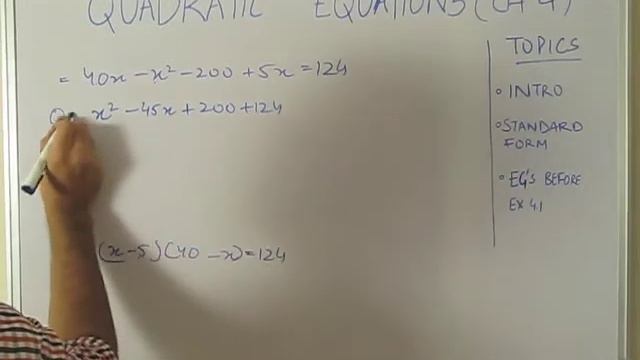 QUADRATIC EQUATIONS (CH 4)
= 40x - x² - 200 + 5x = 124
0 = x² - 45x + 200 + 124
(x - 5)(40 - x) = 124
TOPICS
• INTRO
• STANDARD
FORM
• EG'S BEFORE
EX 4.1